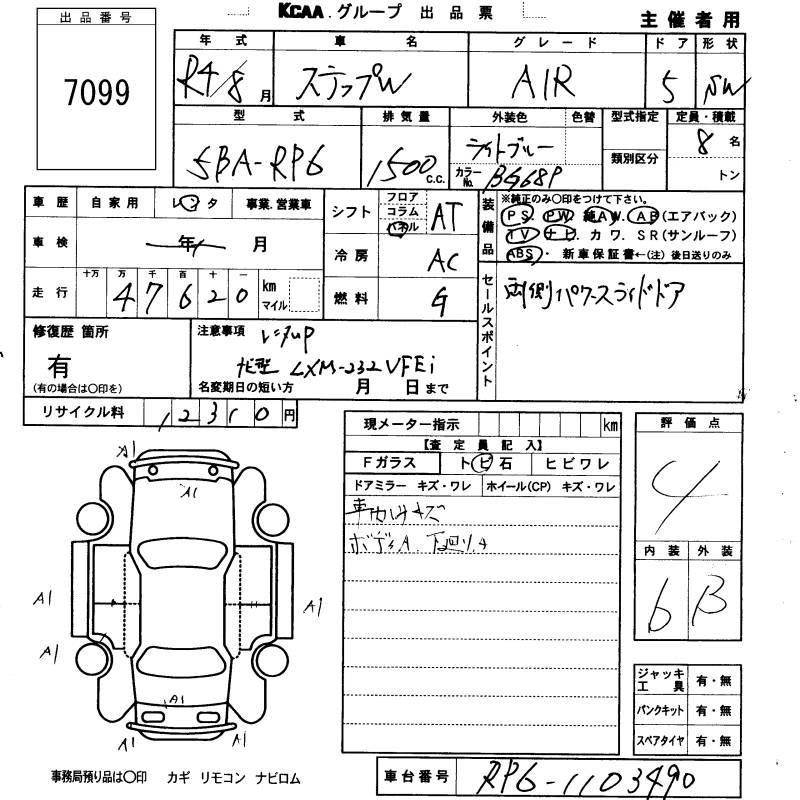 KCAA.グループ 出品票
主催者用
出品番号
7099
年式 車名 グレード ドア 形状
R4/8月 ステップW AIR 5 SW
型式 排気量 外装色 色替 型式指定 定員・積載
5BA-RP6 1500 C.C. ライトブルー 8名
カラーNo. BG68P 類別区分 トン
車歴 自家用 レンタ 事業.営業車
車検 年 月
走行 十万 万 千 百 十 一
47620 km マイル
シフト フロア コラム パネル AT
冷房 AC
燃料 G
装備品
※純正のみ○印をつけて下さい。
PS. PW. 純AW. AB(エアバック)
TV ナビ. カワ. SR(サンルーフ)
ABS・ 新車保証書←(注)後日送りのみ
セールスポイント
両側パワースライドドア
修復歴 箇所
有
(有の場合は○印を)
注意事項 レンタup
ナビ型 LXM-232VFEi
名変期日の短い方 月 日まで
リサイクル料 12310円
現メーター指示 km
【査定員記入】
Fガラス トビ石 ヒビワレ
ドアミラー キズ・ワレ ホイール(CP) キズ・ワレ
車内ルサキズ
ボディA. 下廻りサ
評価点
4
内装 外装
b B
ジャッキ工具 有・無
パンクキット 有・無
スペアタイヤ 有・無
A1
A1
A1
A1
A1
A1
A1
A1
事務局預り品は○印 カギ リモコン ナビロム
車台番号 RP6-1103490